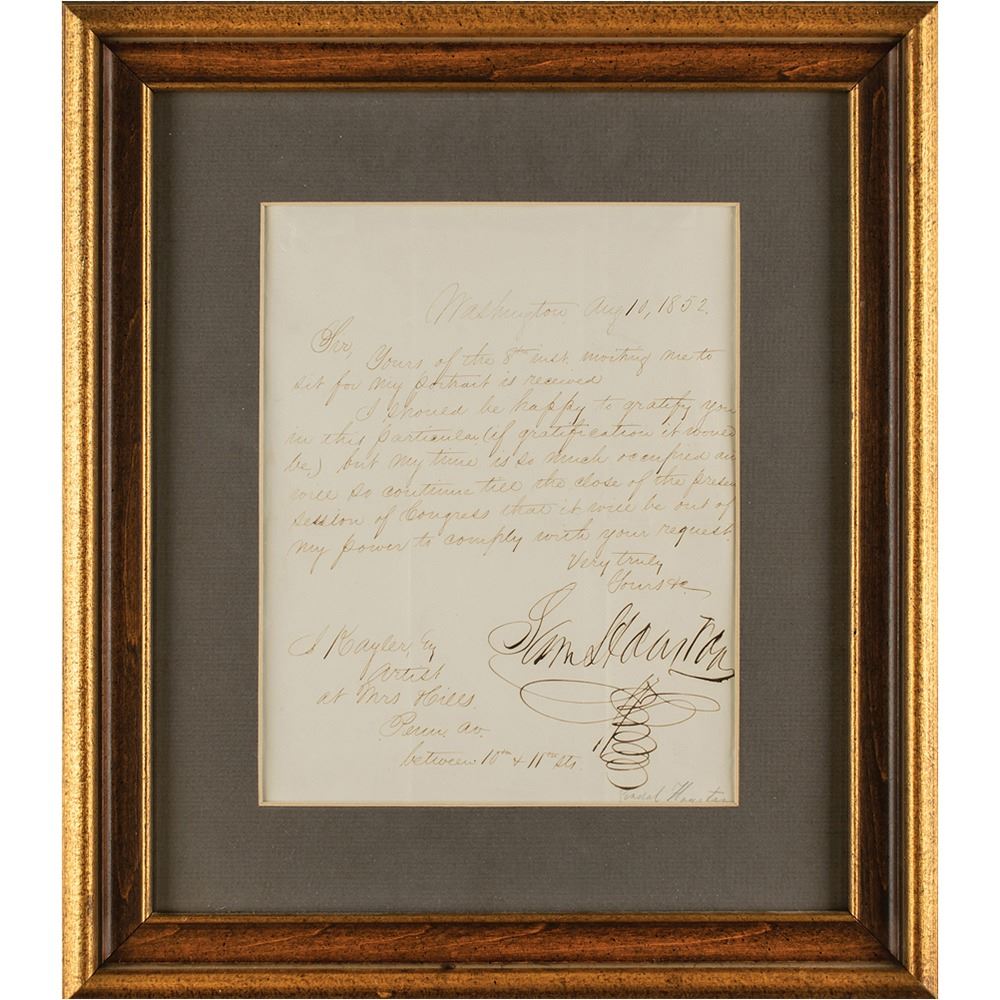 Washington, Aug 10, 1852.
Sir,
Yours of the 8th inst. inviting me to
sit for my portrait is received
I should be happy to gratify you
in this particular (if gratification it would
be) but my time is so much occupied an
will so continue till the close of the presen
session of Congress that it will be out of
my power to comply with your request.
Very truly
Yours &c
Sam Houston
J Kayler, Eq
Artist
at Mrs Hills
Penn. Av.
between 10th & 11th Sts.
Houston